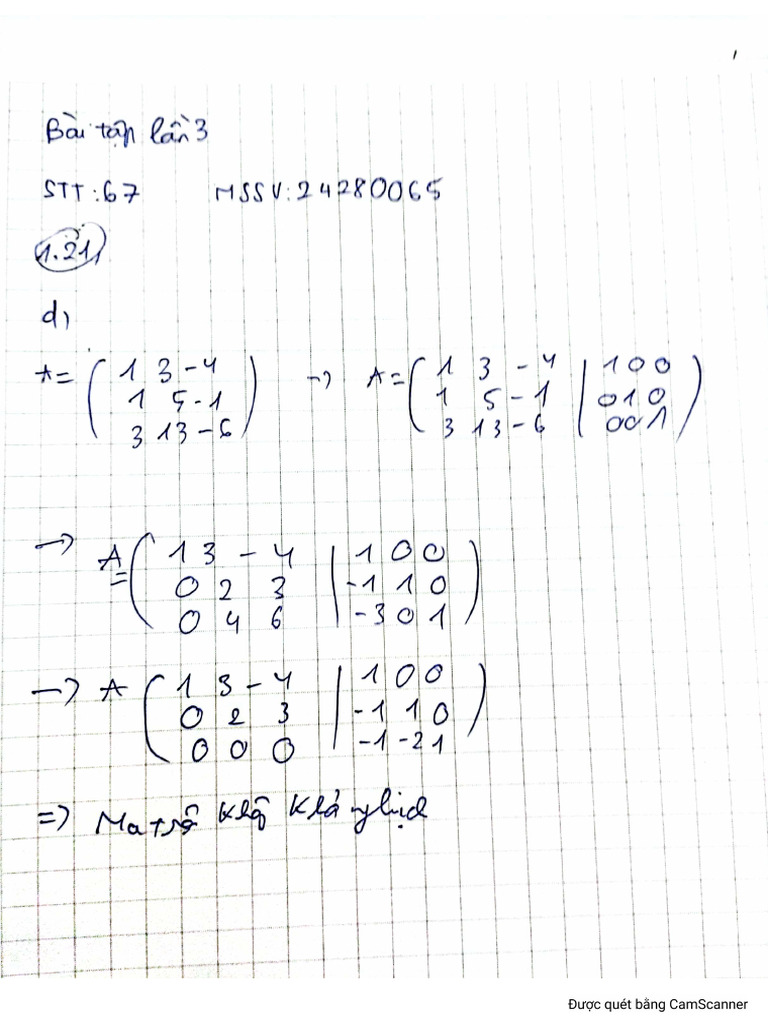 Bài tập lần 3
STT: 67 MSSV: 24280065
1.21,
d,
A = ( 1 3 -4 ) -> A = ( 1 3 -4 | 1 0 0 )
1 5 -1 1 5 -1 | 0 1 0
3 13 -6 3 13 -6 | 0 0 1
-> A = ( 1 3 -4 | 1 0 0 )
0 2 3 | -1 1 0
0 4 6 | -3 0 1
-> A ( 1 3 -4 | 1 0 0 )
0 2 3 | -1 1 0
0 0 0 | -1 -2 1
=> Ma trậ khg khả nghịch
Được quét bằng CamScanner